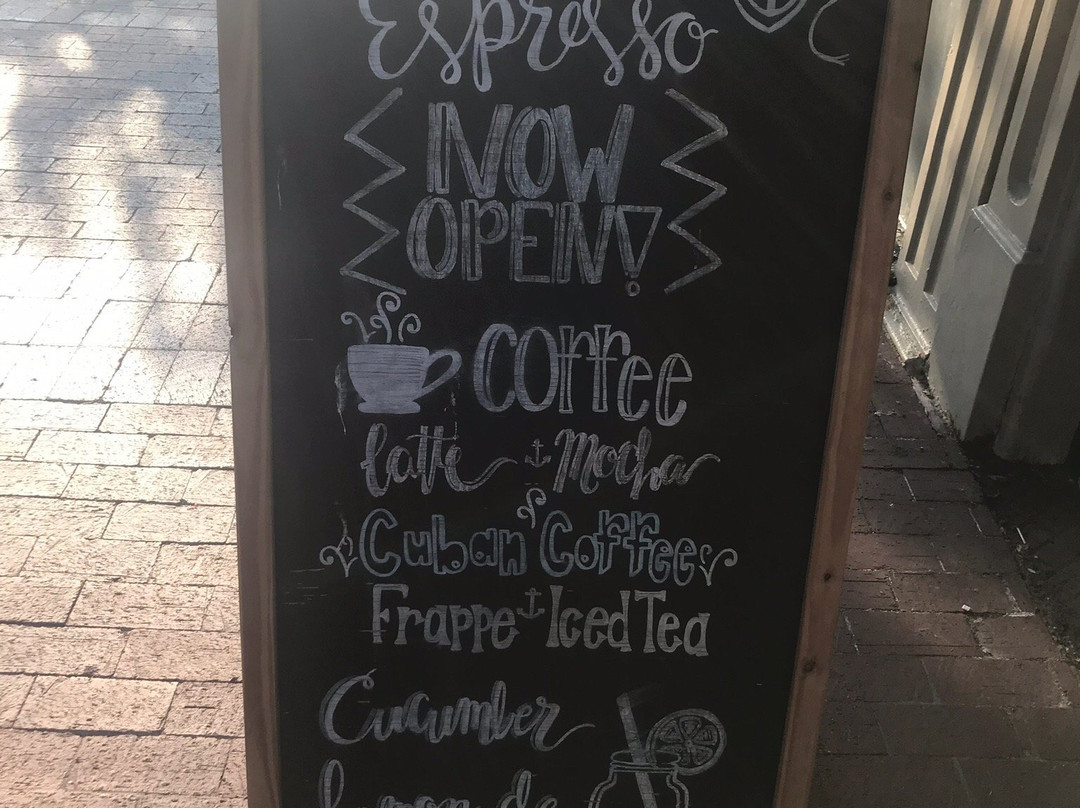 Espresso
NOW
OPEN!
Coffee
Latte Mocha
Cuban Coffee
Frappe Iced Tea
Cucumber
Lemonade